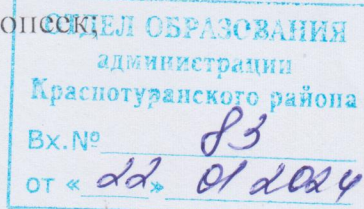 ОТДЕЛ ОБРАЗОВАНИЯ
администрации
Краснотуранского района
Вх.№ 83
от « 22 » 01 2024